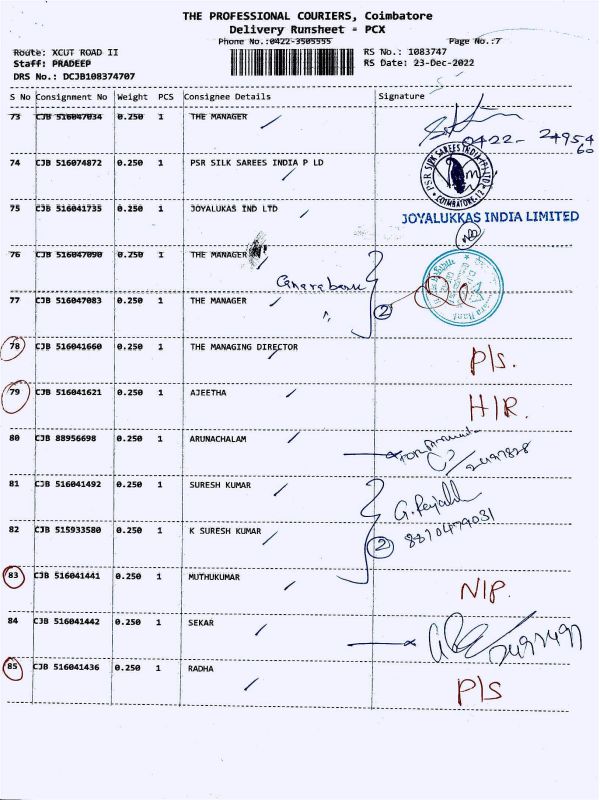 THE PROFESSIONAL COURIERS, Coimbatore
Delivery Runsheet - PCX
Phone No.:0422-3505555 Page No.:7
Route: XCUT ROAD II RS No.: 1083747
Staff: PRADEEP RS Date: 23-Dec-2022
DRS No.: DCJB108374707
S No Consignment No Weight PCS Consignee Details Signature
73 CJB 516047034 0.250 1 THE MANAGER
0422- 24954
60
74 CJB 516074872 0.250 1 PSR SILK SAREES INDIA P LD
PSR SILK SAREES INDIA (P) LTD
COIMBATORE-12
75 CJB 516041735 0.250 1 JOYALUKAS IND LTD
JOYALUKKAS INDIA LIMITED
76 CJB 516047090 0.250 1 THE MANAGER
Canara bank
77 CJB 516047083 0.250 1 THE MANAGER
2
78 CJB 516041660 0.250 1 THE MANAGING DIRECTOR
P/S.
79 CJB 516041621 0.250 1 AJEETHA
H/R.
80 CJB 88956698 0.250 1 ARUNACHALAM
81 CJB 516041492 0.250 1 SURESH KUMAR
82 CJB 515933580 0.250 1 K SURESH KUMAR
8870479031
2
83 CJB 516041441 0.250 1 MUTHUKUMAR
N/P.
84 CJB 516041442 0.250 1 SEKAR
2497497
85 CJB 516041436 0.250 1 RADHA
P/S